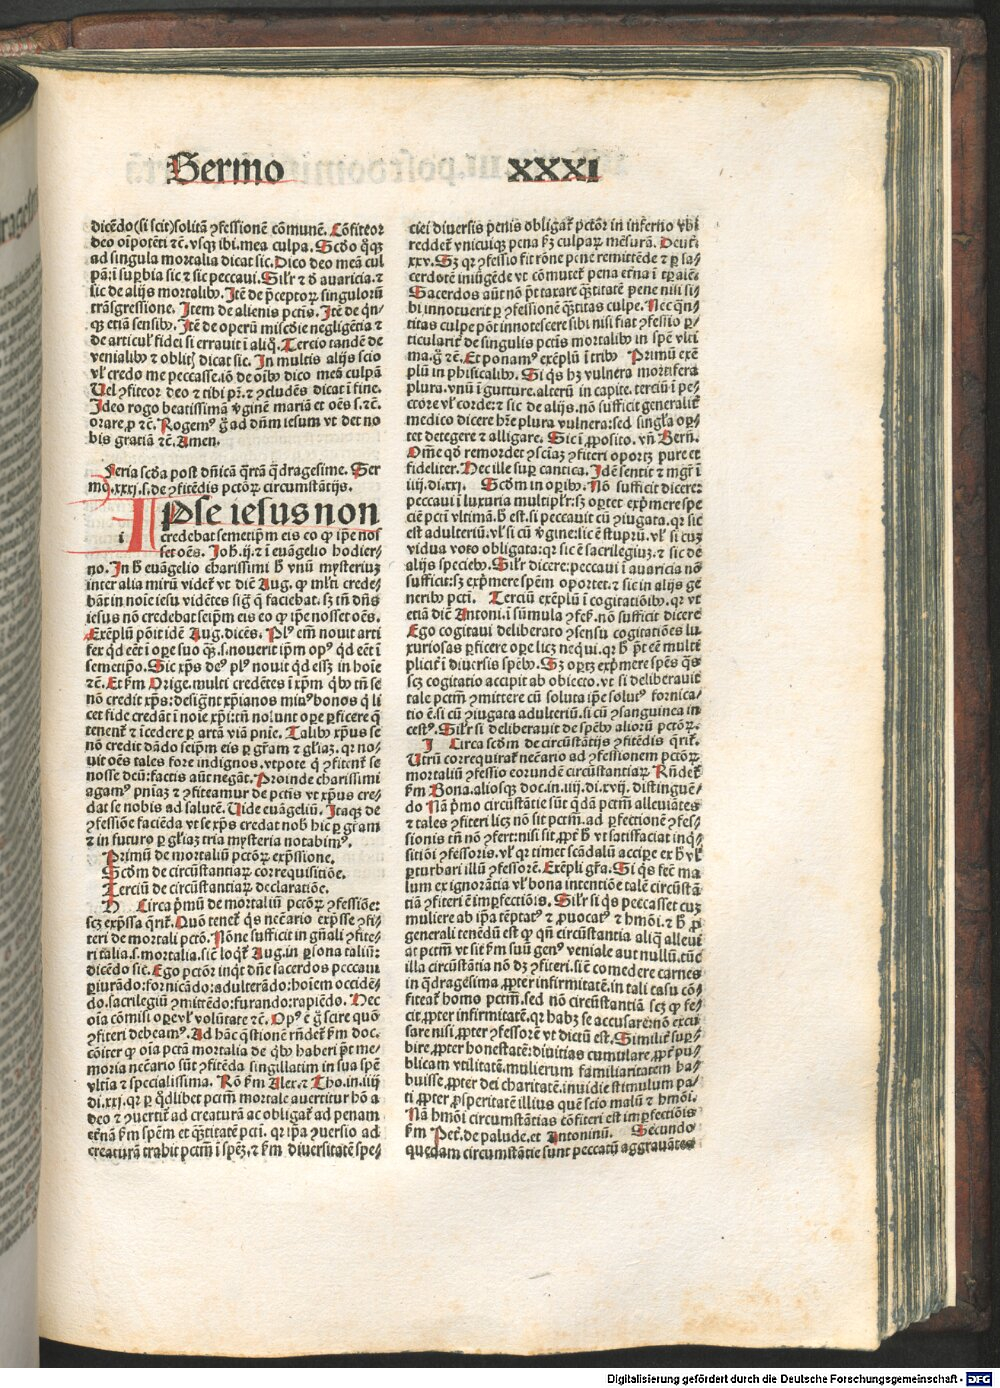 Sermo XXXI
dicēdo (si scit) solitā ꝯfessionē cōmunē. Cōfiteor
deo oīpotēti ⁊c̄. vsqꝫ ibi. mea culpa. Scd̄o q̊sqꝫ
ad singula mortalia dicat sic. Dico deo meā cul
pā: ī suꝑbia sic ⁊ sic peccaui. Silr̄ ⁊ d̄ auaricia. ⁊
sic de alijs mortalibꝰ. Itē de p̄ceptoꝝ singulorū
trāsgressione. Item de alienis pctīs. Itē de qn̄-
qꝫ etiā sensibꝰ. Itē de operū misc̄die negligētia ⁊
de articul' fidei si errauit ī aliq̄. Tercio tandē de
venialibꝰ ⁊ oblit' dicat sic. In multis alijs scio
vl' credo me peccasse. iō de oībꝰ dico meā culpā
Uel ꝯfiteor deo ⁊ tibi pr̄. ⁊ ꝯcludēs dicat ī fine.
Ideo rogo beatissimā v̄ginē mariā et oēs s. ⁊c̄.
orare ꝓ ⁊c̄. Rogemꝰ g̊ ad dn̄m iesum vt det no
bis gratiā ⁊c̄. Amen.
Feria scd̄a post dn̄icā q̄rtā q̄dragesime. Ser
mo. xxxi. s. de ꝯfitēdis pctōꝝ circumstātijs.
IPse iesus non
i credebat semetip̄m eis eo ꝙ ip̄e nos
set oēs. Joh. ij. ⁊ ī euāgelio hodier-
no. In h̄ euāgelio charissimi h̄ vnū mysteriuꝫ
inter alia mirū videt᷑ vt dicit Aug. ꝙ ml'ti crede-
bāt in noīe iesu vidētes siḡ q̄ faciebat. sꝫ tn̄ dn̄s
iesus nō credebat seip̄m eis eo ꝙ ip̄e nosset oēs.
Exēplū pōit idē Aug. dicēs. Plꝰ em̄ nouit arti
fex qd̄ eēt ī oꝑe suo qꝫ. s. nouerit ip̄m opꝰ qd̄ eēt ī
semetip̄o. Sic xp̄s deꝰ plꝰ nouit qd̄ essꝫ in hoīe
⁊c̄. Et ẜm Orige. multi credētes ī xp̄m qͥbꝰ tn̄ se
nō credit xp̄s: desigt̄n xp̄ianos minꝰ bonos q̄ li
cet fide credāt ī noīe xp̄i: tn̄ nolunt oꝑe ꝑficere q̄
tenent᷑ ⁊ īcedere ꝑ artā viā pn̄ie. Talibꝰ xp̄us se
nō credit dādo seip̄m eis ꝑ gr̄am ⁊ gl'iaꝫ. qꝛ no-
uit oēs tales fore indignos. vtpote q̄ ꝯfitent᷑ se
nosse deū: factis aūt negāt. Proinde charissimi
agamꝰ pn̄iaꝫ ⁊ ꝯfiteamur de pctīs vt xp̄us cre-
dat se nobis ad salutē. Uide euāgeliū. Itaqꝫ de
ꝯfessiōe faciēda vt se xp̄s credat nob' hic ꝑ gr̄am
⁊ in futuro ꝑ gl'iaꝫ tria mysteria notabimꝰ.
Primū de mortaliū pctōꝝ exp̄ssione.
Scd̄m de circūstantiaꝝ correquisitiōe.
Terciū de circūstantiaꝝ declaratiōe.
H Circa p̄mū de mortaliū pctōꝝ ꝯfessiōe:
scꝫ exp̄ssa q̄rit᷑. Quō tenet᷑ q̄s nec̄ario exp̄sse ꝯfi-
teri de mortali pctō. Nōne sufficit in gn̄ali ꝯfite-
ri talia. s. mortalia. sic̄ loqt᷑ Aug. in ꝑsona taliū:
dicēdo sic̄. Ego pctōr inqt̄ dn̄e sacerdos peccaui
ꝑiurādo: fornicādo: adulterādo: hoīem occidē-
do. sacrilegiū ꝯmittēdo: furando: rapiēdo. Hec
oīa cōmisi oꝑe vl' volūtate ⁊c̄. Opꝰ ē g̊ scire quō
ꝯfiteri debeamꝰ. Ad hāc q̄stionē rn̄det᷑ ẜm doc.
cōiter ꝙ oīa pctā mortalia de qͥbꝰ haberi p̄t me-
moria nec̄ario sūt ꝯfitēda singillatim in sua spē
vltīa ⁊ specialissima. Rō ẜm Alex. ⁊ Tho. in. iiij
di. xxi. qꝛ ꝑ qd̄libet pctm̄ mortale auertitur hō a
deo ⁊ ꝯuertit᷑ ad creaturā ac obligat᷑ ad penam
et̄nā ẜm spēm et q̄titatē pctī. qꝛ ip̄a ꝯuersio ad
creaturā trahit pctm̄ ī spēꝫ. ⁊ ẜm diuersitatē spe-
ciei diuersis penis obligat᷑ pctōr in inferno vbi
reddet᷑ vnicuiqꝫ pena ẜꝫ culpaꝝ mēsurā. Deut᷑.
xxv. Sꝫ qꝛ ꝯfessio fit rōne pene remittēde ⁊ ꝑ sa-
cerdotē iniūgēde vt cōmutet᷑ pena et̄na ī tꝑalē
Sacerdos aūt nō p̄t taxare q̄titatē pene nisi si-
bi innotuerit ꝑ ꝯfessionē q̄titas culpe. Nec q̄n-
titas culpe pōt innotescere sibi nisi fiat ꝯfessio ꝑ-
ticularit᷑ de singulis pctīs mortalibꝰ in spē vlti
ma. g̊ ⁊c̄. Et ponamꝰ exēplū ī tribꝰ Primū exē
plū in phisicalibꝰ. Si q̄s hꝫ vulnera mortifera
plura. vnū ī gutture. alterū in capite. terciū ī pe-
ctore vl' corde: ⁊ sic de alijs. nō sufficit generalit᷑
medico dicere h̄re plura vulnera: sed singl'a opꝫ-
tet detegere ⁊ alligare. Sic ī ꝓposito. vn̄ Bern̄.
Om̄e qd̄ remordet ꝯsciaꝫ ꝯfiteri oportꝫ pure et
fideliter. Hec ille suꝑ cantica. Idē sentit ⁊ mgr̄ ī
iiij. di. xxj. Scd̄m in oꝑibꝰ. Nō sufficit dicere:
peccaui ī luxuria multiplr̄. sꝫ oꝫtet exp̄mere spe
ciē pctī vltimā. h̄ est. si peccauit cū ꝯiugata. qꝛ sic
est adulteriū. vl' si cū v̄gine: sic ē stuprū. vl' si cuꝫ
vidua voto obligata: qꝛ sic ē sacrilegiuꝫ. ⁊ sic de
alijs speciebꝰ. Silr̄ dicere: peccaui ī auaricia nō
sufficit: sꝫ exp̄mere spēm oportet. ⁊ sic in alijs ge
neribꝰ pctī. Terciū exēplū ī cogitatiōibꝰ. qꝛ vt
etiā dicit Antoni. ī sūmula ꝯfess. nō sufficit dicere
Ego cogitaui deliberato ꝯsensu cogitatiōes lu
xuriosas ꝑficere oꝑe licꝫ neq̄ui. qꝛ h̄ p̄t eē multi
plicit᷑ ī diuersis spēbꝰ. Sꝫ oꝫtꝫ exp̄mere spēs q̄s
scꝫ cogitatio accipit ab obiecto. vt si deliberauit
tale pctm̄ ꝯmittere cū soluta ip̄e solutꝰ fornica-
tio ē. si cū ꝯiugata adulteriū. si cū ꝯsanguinea in
cestꝰ. Silr̄ si deliberauit de spēbꝰ aliorū pctōꝝ.
I Circa scd̄m de circūstātijs ꝯfitēdis q̄rit᷑.
Utrū correquirat᷑ nec̄ario ad ꝯfessionem pctōꝝ
mortaliū ꝯfessio eorundē circūstantiaꝝ Rn̄det᷑
ẜm Bona. aliosqꝫ doc. in. iiij. di. xvij. distinguē-
do Nā p̄mo circūstātie sūt q̄dā pctm̄ alleuiātes
⁊ tales ꝯfiteri licꝫ nō sit pctm̄. ad ꝑfectionē ꝯfes-
sionis tn̄ nō ꝯfert: nisi sit ꝓpt᷑ h̄ vt satisfaciat inq̄-
sitiōi ꝯfessoris. vl' qꝛ timet scādalū acciꝑe ex h̄ vl'
ꝑturbari illū ꝯfessorē. Exēpli gr̄a. Si q̄s fec̄ ma
lum ex ignorātia vl' bona intentiōe talē circūstā
tiā ꝯfiteri ē imꝑfectiōis. Silr̄ si q̄s peccasset cuꝫ
muliere ab ip̄a tēptatꝰ ⁊ ꝓuocatꝰ ⁊ hmōi. ⁊ h̄ ꝓ
generali tenēdū est ꝙ qn̄ circūstantia aliq̄ alleui
at pctm̄ vt sit ẜm suū genꝰ veniale aut nullū. tūc
illa circūstātia nō dꝫ ꝯfiteri. sic̄ comedere carnes
in q̄dragēsima ꝓpter infirmitatē. in tali casu cō-
fiteat᷑ homo pctm̄. sed nō circūstantiā scꝫ ꝙ fe-
cit ꝓpter infirmitatē. qꝛ habꝫ se accusare: nō excu
sare nisi ꝓpter ꝯfessorē vt dictū est. Similit᷑ suꝑ-
bire ꝓpter honestatē: diuitias cumulare ꝓpt᷑ pu-
blicam vtilitatē. mulierum familiaritatem ha-
buisse ꝓpter dei charitatē. inuidie stimulum pa-
ti ꝓpter ꝓsperitatē illius quē scio malū ⁊ hmōi.
Nā hmōi circumstātias cōfiteri est imꝑfectiōis
ẜm Petr̄. de palude. et Antoninū. Secundo
quedam circumstātie sunt peccatū aggrauātes
Digitalisierung gefördert durch die Deutsche Forschungsgemeinschaft - DFG